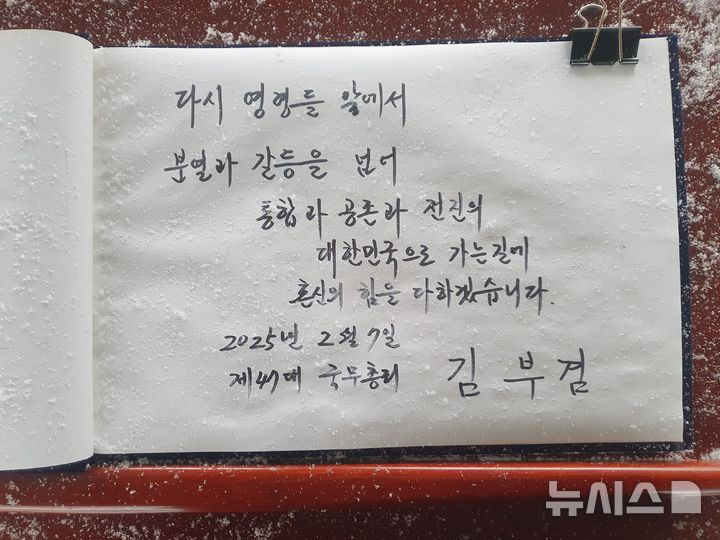 다시 영령들 앞에서
분열과 갈등을 넘어
통합과 공존과 전진의
대한민국으로 가는길에
혼신의 힘을 다하겠습니다.
2025년 2월 7일
제47대 국무총리 김부겸
뉴시스